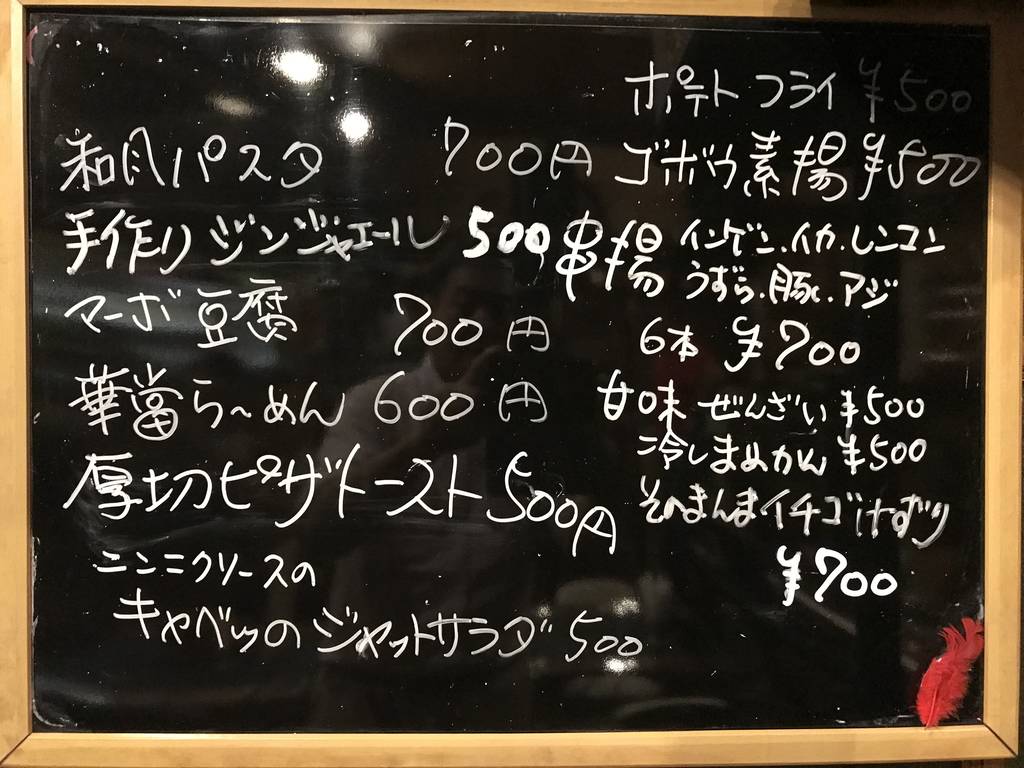 和風パスタ 700円
手作りジンジャエール 500
マーボ豆腐 700円
華當らーめん 600円
厚切ピザトースト 500円
ニンニクソースの
キャベツのジャットサラダ 500
ポテトフライ ¥500
ゴボウ素揚 ¥500
串揚 インゲン.イカ.レンコン
うずら.豚.アジ
6本 ¥700
甘味 ぜんざい ¥500
冷しまめかん ¥500
そのまんまイチゴけずり
¥700